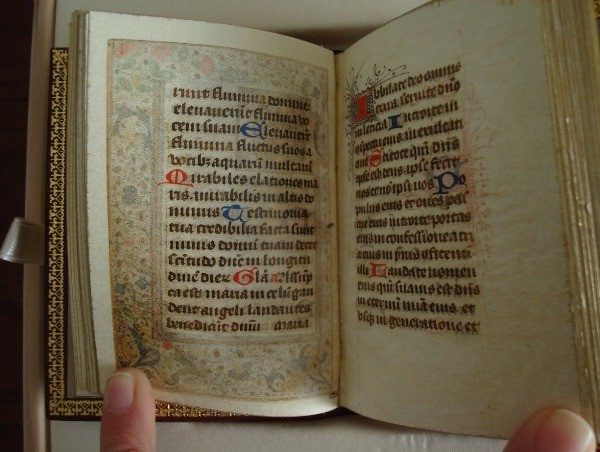 runt flumina domine
eleuauerūt flumina vo
cem suam Eleuauerūt
flumina fluctus suos a
vocibꝰ aquarū multarū
Mirabiles elationes ma
ris mirabilis in altis do
minus Testimonia
tua credibilia facta sunt
nimis domū tuam decet
scitudo dn̄e in longitu
dinē dieꝝ Glā Assūp
ta est maria in celū gau
dent angeli laudantes
benedicūt dn̄m maria
Iubilate deo omnis
terra seruite dn̄o
in leticia Introite in
cōspectu eius in exultati
Scitote qm̄ dn̄s
ipse est deus ipse fecit
nos et nō ipsi nos Po
pulus eius et oues pas
cue eius introite portas
eius in confessione atri
a eius in ymnis cōfitemi
illi Laudate nomen
eius qm̄ suauis est dn̄s
in eternū mīa eius et
vsqꝫ in generatione et